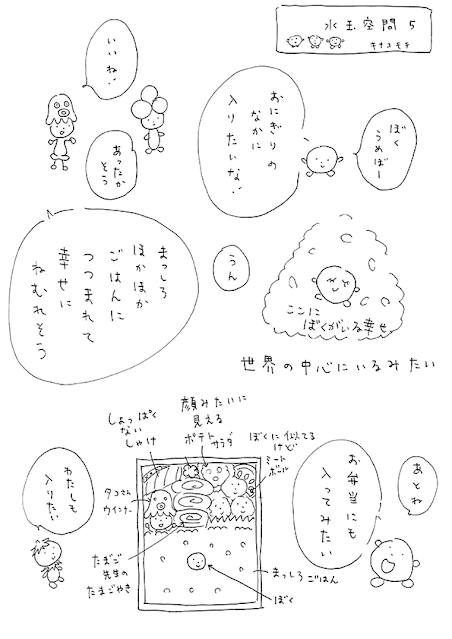 水玉空間 5
キナコモチ
ぼく
うめぼー
おにぎりの
なかに
入りたいな‥
いいね‥
あったか
そう
ここに
ぼくがいる幸せ
世界の中心にいるみたい
うん
まっしろ
ほかほか
ごはんに
つつまれて
幸せに
ねむれそう
あとね
お弁当にも
入ってみたい
ぼくに似てる
けど
ミート
ボール
顔みたいに
見える
ポテトサラダ
しょっぱく
ない
しゃけ
タコさん
ウインナー
たまご
先生の
たまごやき
まっしろごはん
ぼく
わたしも
入りたい